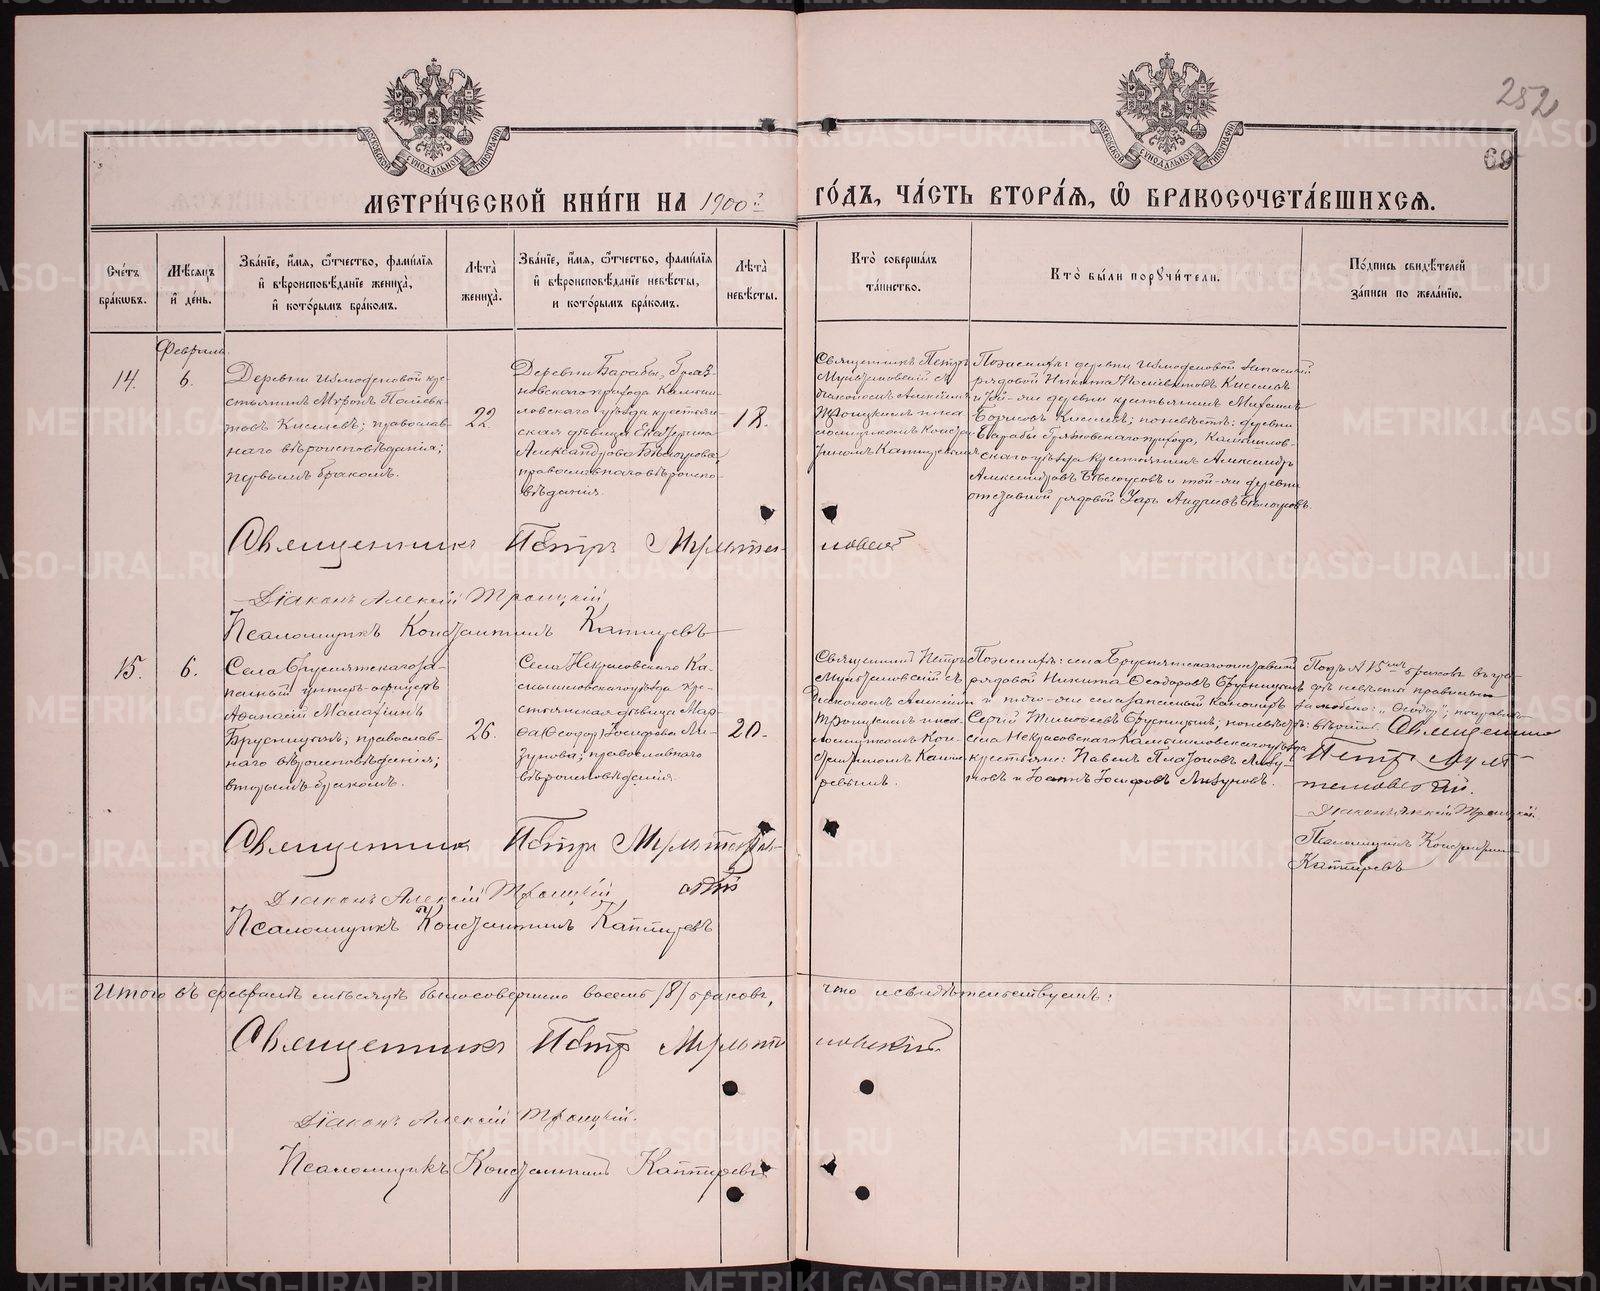 252
69
МОСКОВСКОЙ СѴНОДАЛЬНОЙ ТИПОГРАФІИ
МОСКОВСКОЙ СѴНОДАЛЬНОЙ ТИПОГРАФІИ
МЕТРИ́ЧЕСКОЙ КНИ́ГИ НА 1900 ГО́ДЪ, ЧА́СТЬ ВТОРА́Я, Ѽ БРАКОСОЧЕТА́ВШИХСЯ.
Сче́тъ
бра́кѡвъ.
Мѣ́сяцъ
и҆ де́нь.
Зва́нїе, и҆́мя, ѻ҆́тчество, фами́лїя
и҆ вѣроисповѣ́данїе жениха̀,
и҆ кото́рымъ бра́комъ.
Лѣта̀
жениха̀.
Зва́нїе, и҆́мя, ѻ҆́тчество, фами́лїя
и҆ вѣроисповѣ́данїе невѣ́сты,
и҆ кото́рымъ бра́комъ.
Лѣта̀
невѣ́сты.
Кто̀ соверша́лъ
та́инство.
Кто̀ бы́ли порꙋчи́тели.
По́дпись свидѣ́телей
за́писи по жела́нїю.
Февраль.
14.
6.
Деревни
кре-
стьянинъ Миронъ
Киселевъ; православ-
наго вѣроисповѣданія;
первымъ бракомъ.
22.
Деревни Барабы,
новскаго прихода Камыш-
ловскаго уѣзда крестьян-
ская дѣвица Екатерина
Александрова Бѣлоусова,
православнаго вѣроиспо-
вѣданія.
18.
Священникъ Петръ
съ
діакономъ Алексіемъ
Троицкимъ и пса-
ломщикомъ Констан-
тиномъ
По женихѣ: деревни
запасный
рядовой Никита
Киселевъ
и той-же деревни крестьянинъ Михаилъ
Борисовъ Киселевъ; по невѣстѣ: деревни
Барабы
прихода, Камышлов-
скаго уѣзда крестьянинъ Александръ
Александровъ Бѣлоусовъ и той-же деревни
отставной рядовой
Андреевъ Бѣлоусовъ.
Священникъ Петръ
Діаконъ Алексій Троицкій
Псаломщикъ Константинъ
15.
6.
Села Бруснятскаго за-
пасный унтеръ-офицеръ
Аѳанасій Малахіинъ
Брусницынъ; православ-
наго вѣроисповѣданія;
вторымъ бракомъ.
26.
Села Некрасовскаго Ка-
мышловскаго уѣзда кре-
стьянская дѣвица Мар-
ѳа (Ѳеодор) Іосифова Ли-
зунова; православнаго
вѣроисповѣданія.
20.
Священникъ Петръ
съ
Діакономъ Алексіемъ
Троицкимъ и пса-
ломщикомъ Кон-
стантиномъ
По женихѣ: села Бруснятскаго отставной
рядовой Никита Ѳеодоровъ Брусницынъ
и того-же села запасный
Сергій Тимоѳеевъ Брусницынъ; по невѣстѣ:
села Некрасовскаго Камышловскаго уѣзда
крестьяне: Павелъ Платоновъ Лизу-
новъ и Іоаннъ Іосифовъ Лизуновъ.
Подъ № 15 браковъ въ гра-
фѣ невѣсты правильно
"Ѳеодор",
вѣрить. Священникъ
Петръ
Діаконъ Алексій Троицкій.
Псаломщикъ Константинъ
Священникъ Петръ
Діаконъ Алексій Троицкій
Псаломщикъ Константинъ
Итого въ февралѣ мѣсяцѣ было совершено восемь /8/ браковъ, что и свидѣтельствуемъ:
Священникъ Петръ
Діаконъ Алексій Троицкій.
Псаломщикъ Константинъ
METRIKI.GASO-URAL.RU